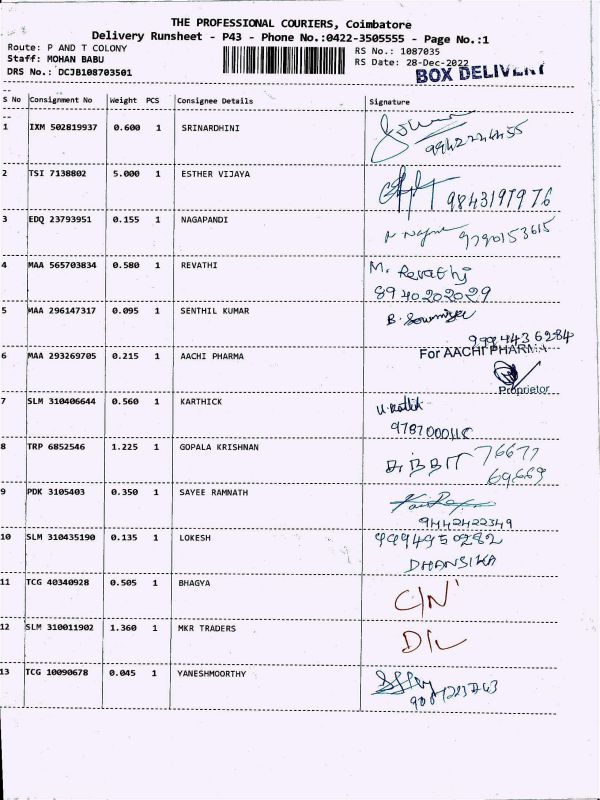 THE PROFESSIONAL COURIERS, Coimbatore
Delivery Runsheet - P43 - Phone No.:0422-3505555 - Page No.:1
Route: P AND T COLONY
Staff: MOHAN BABU
DRS No.: DCJB108703501
RS No.: 1087035
RS Date: 28-Dec-2022
BOX DELIVERY
S No Consignment No Weight PCS Consignee Details Signature
1 IXM 502819937 0.600 1 SRINARDHINI
2 TSI 7138802 5.000 1 ESTHER VIJAYA
9843197976
3 EDQ 23793951 0.155 1 NAGAPANDI
9790153615
4 MAA 565703834 0.580 1 REVATHI
M. Revathi
8940202029
5 MAA 296147317 0.095 1 SENTHIL KUMAR
B. Sowmiya
9994436284
6 MAA 293269705 0.215 1 AACHI PHARMA
For AACHI PHARMA
Proprietor
7 SLM 310406644 0.560 1 KARTHICK
8 TRP 6852546 1.225 1 GOPALA KRISHNAN
76677
69669
9 PDK 3105403 0.350 1 SAYEE RAMNATH
9442422349
10 SLM 310435190 0.135 1 LOKESH
9994950282
DHANSIKA
11 TCG 40340928 0.505 1 BHAGYA
C/N
12 SLM 310011902 1.360 1 MKR TRADERS
D/L
13 TCG 10090678 0.045 1 YANESHMOORTHY